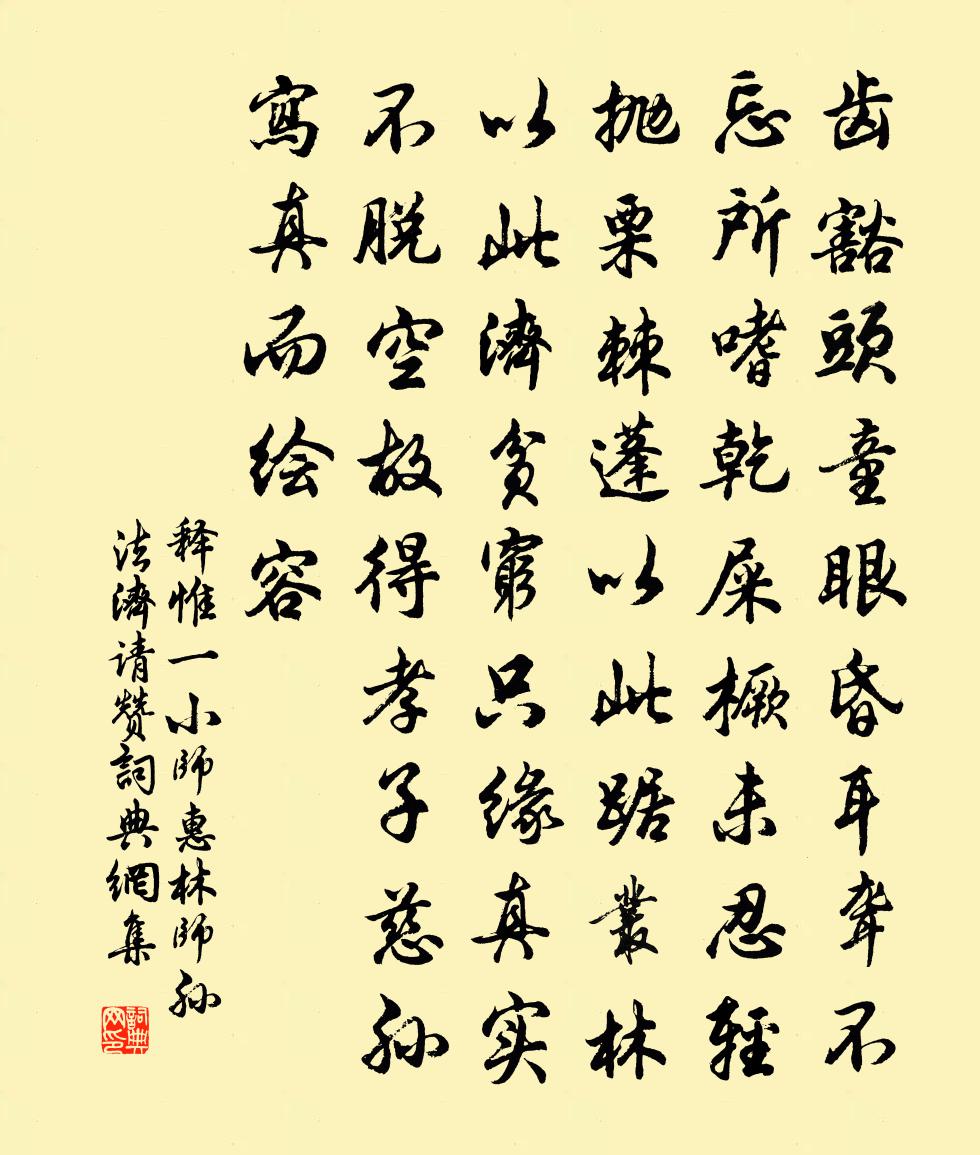 齿豁頭童眼昏耳聋不
忘所嗜乾屎橛未忍輕
抛栗棘蓬以此踞叢林
以此濟貧窮只缘真实
不脱空故得孝子慈孙
寫真而绘容
释惟一小师惠林师孙
法濟请赞詞典網集
詞典网印